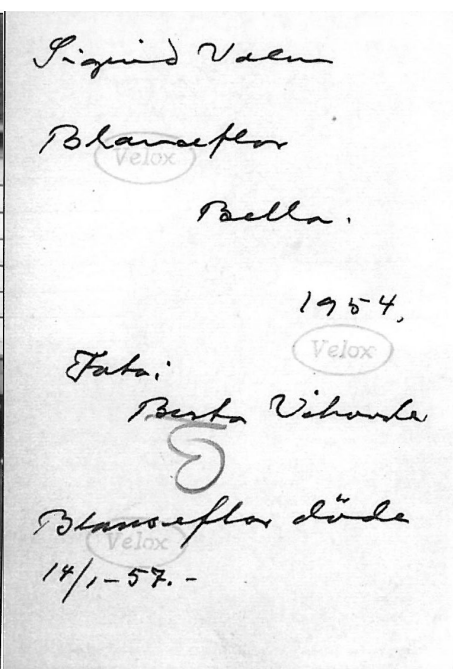 Sigrid Valen
Blanseflor
Velox
Bella.
1954.
Velox
Foto:
Berta Vihovde
5
Blanseflor döde
Velox
14/1-57.-